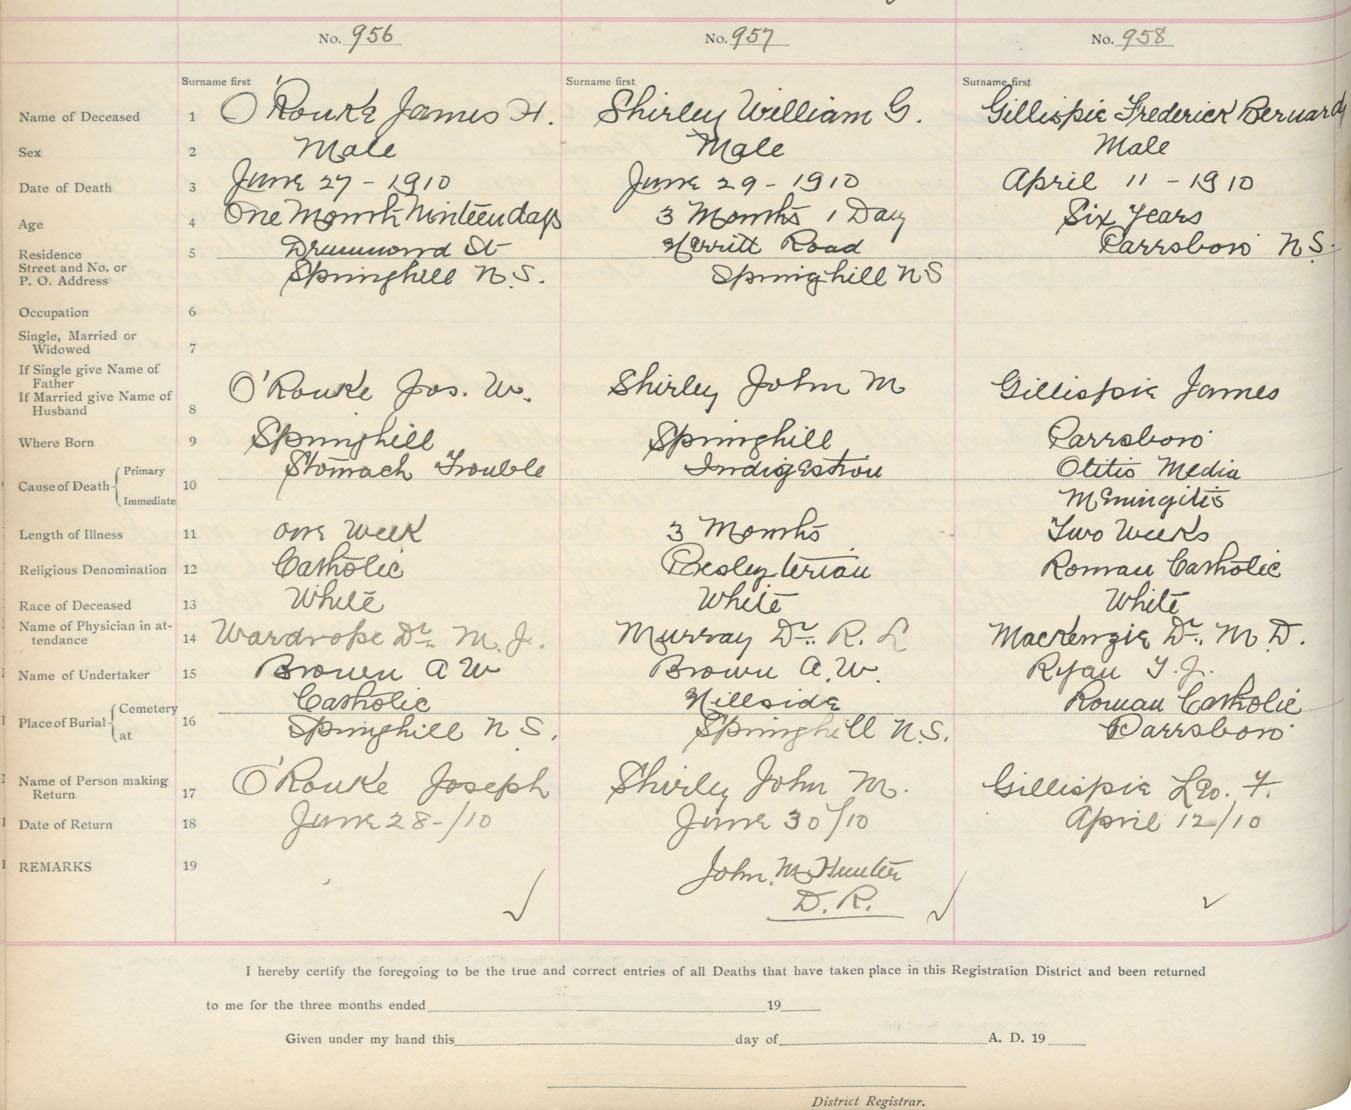 No. 956 No. 957 No. 958
Surname first Surname first Surname first
Name of Deceased 1 O'Rourke James H. Shirley William G. Gillispie Frederick Bernard
Sex 2 Male Male Male
Date of Death 3 June 27 - 1910 June 29 - 1910 April 11 - 1910
Age 4 One Month Ninteen days 3 Months 1 Day Six Years
Residence 5 Drummond St Herritt Road Parrsboro N.S.
Street and No. or
P. O. Address Springhill N.S. Springhill N S
Occupation 6
Single, Married or
Widowed 7
If Single give Name of
Father
If Married give Name of O'Rourke Jos. W. Shirley John M Gillispie James
Husband 8
Where Born 9 Springhill Springhill Parrsboro
Cause of Death Primary 10 Stomach Trouble Indigestion Otitis Media
Immediate Meningitis
Length of Illness 11 one Week 3 Months Two Weeks
Religious Denomination 12 Catholic Presbyterian Roman Catholic
Race of Deceased 13 White White White
Name of Physician in at-
tendance 14 Wardrope Dr. M. J. Murray Dr. R. L Mackenzie Dr. M. D.
Name of Undertaker 15 Brown A W Brown A. W. Ryan T. J.
Place of Burial Cemetery 16 Catholic Hillside Roman Catholic
at Springhill N S. Springhill N.S. Parrsboro
Name of Person making
Return 17 O'Rourke Joseph Shirley John M. Gillispie Leo. F.
Date of Return 18 June 28-/10 June 30/10 April 12/10
REMARKS 19 John. M Hunter
D. R.
I hereby certify the foregoing to be the true and correct entries of all Deaths that have taken place in this Registration District and been returned
to me for the three months ended 19
Given under my hand this day of A. D. 19
District Registrar.